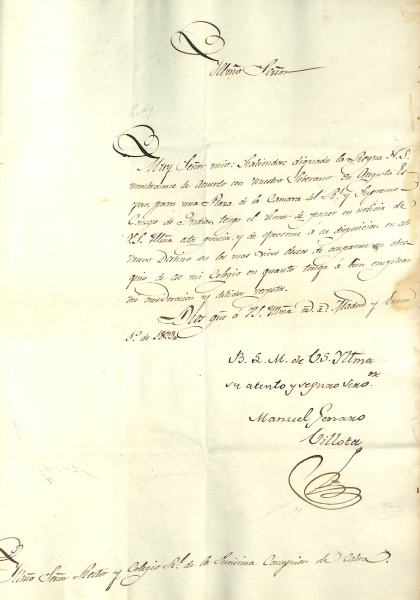 Illmo Señor
Muy Señor mio: Habiendose dignado la Reyna N. S.
nombrarme de Acuerdo con nuestro Soberano su Augusto Es-
poso, para una Plaza de la Camara del Rl. y Supremo
Consejo de Indias, tengo el honor de poner en noticia de
V.S. Illma esta gracia, y de ofrecerme a su disposicion en este
nuevo Destino con los mas vivos deseos de ocuparme en obse-
quio de ese mi Colegio en quanto tenga á bien emplear
mi consideracion y debidos respetos.
Dios gue á V.S. Illma ms. as. Madrid y Enero
1º. de 1833
B. L. M. de V.S. Illma
su atento y seguro servor.
Manuel Genaro
Villota
Illmo Señor Rector y Colegio Rl. de la Purisima Concepcion de Cabra.